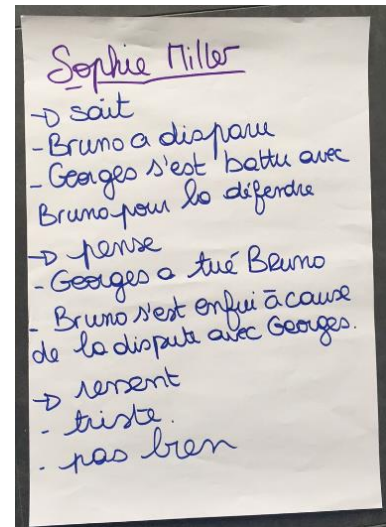 Sophie Miller
→ sait
- Bruno a disparu
- Georges s'est battu avec
Bruno pour la défendre
→ pense
- Georges a tué Bruno
- Bruno s'est enfui à cause
de la dispute avec Georges.
→ ressent
- triste.
- pas bien